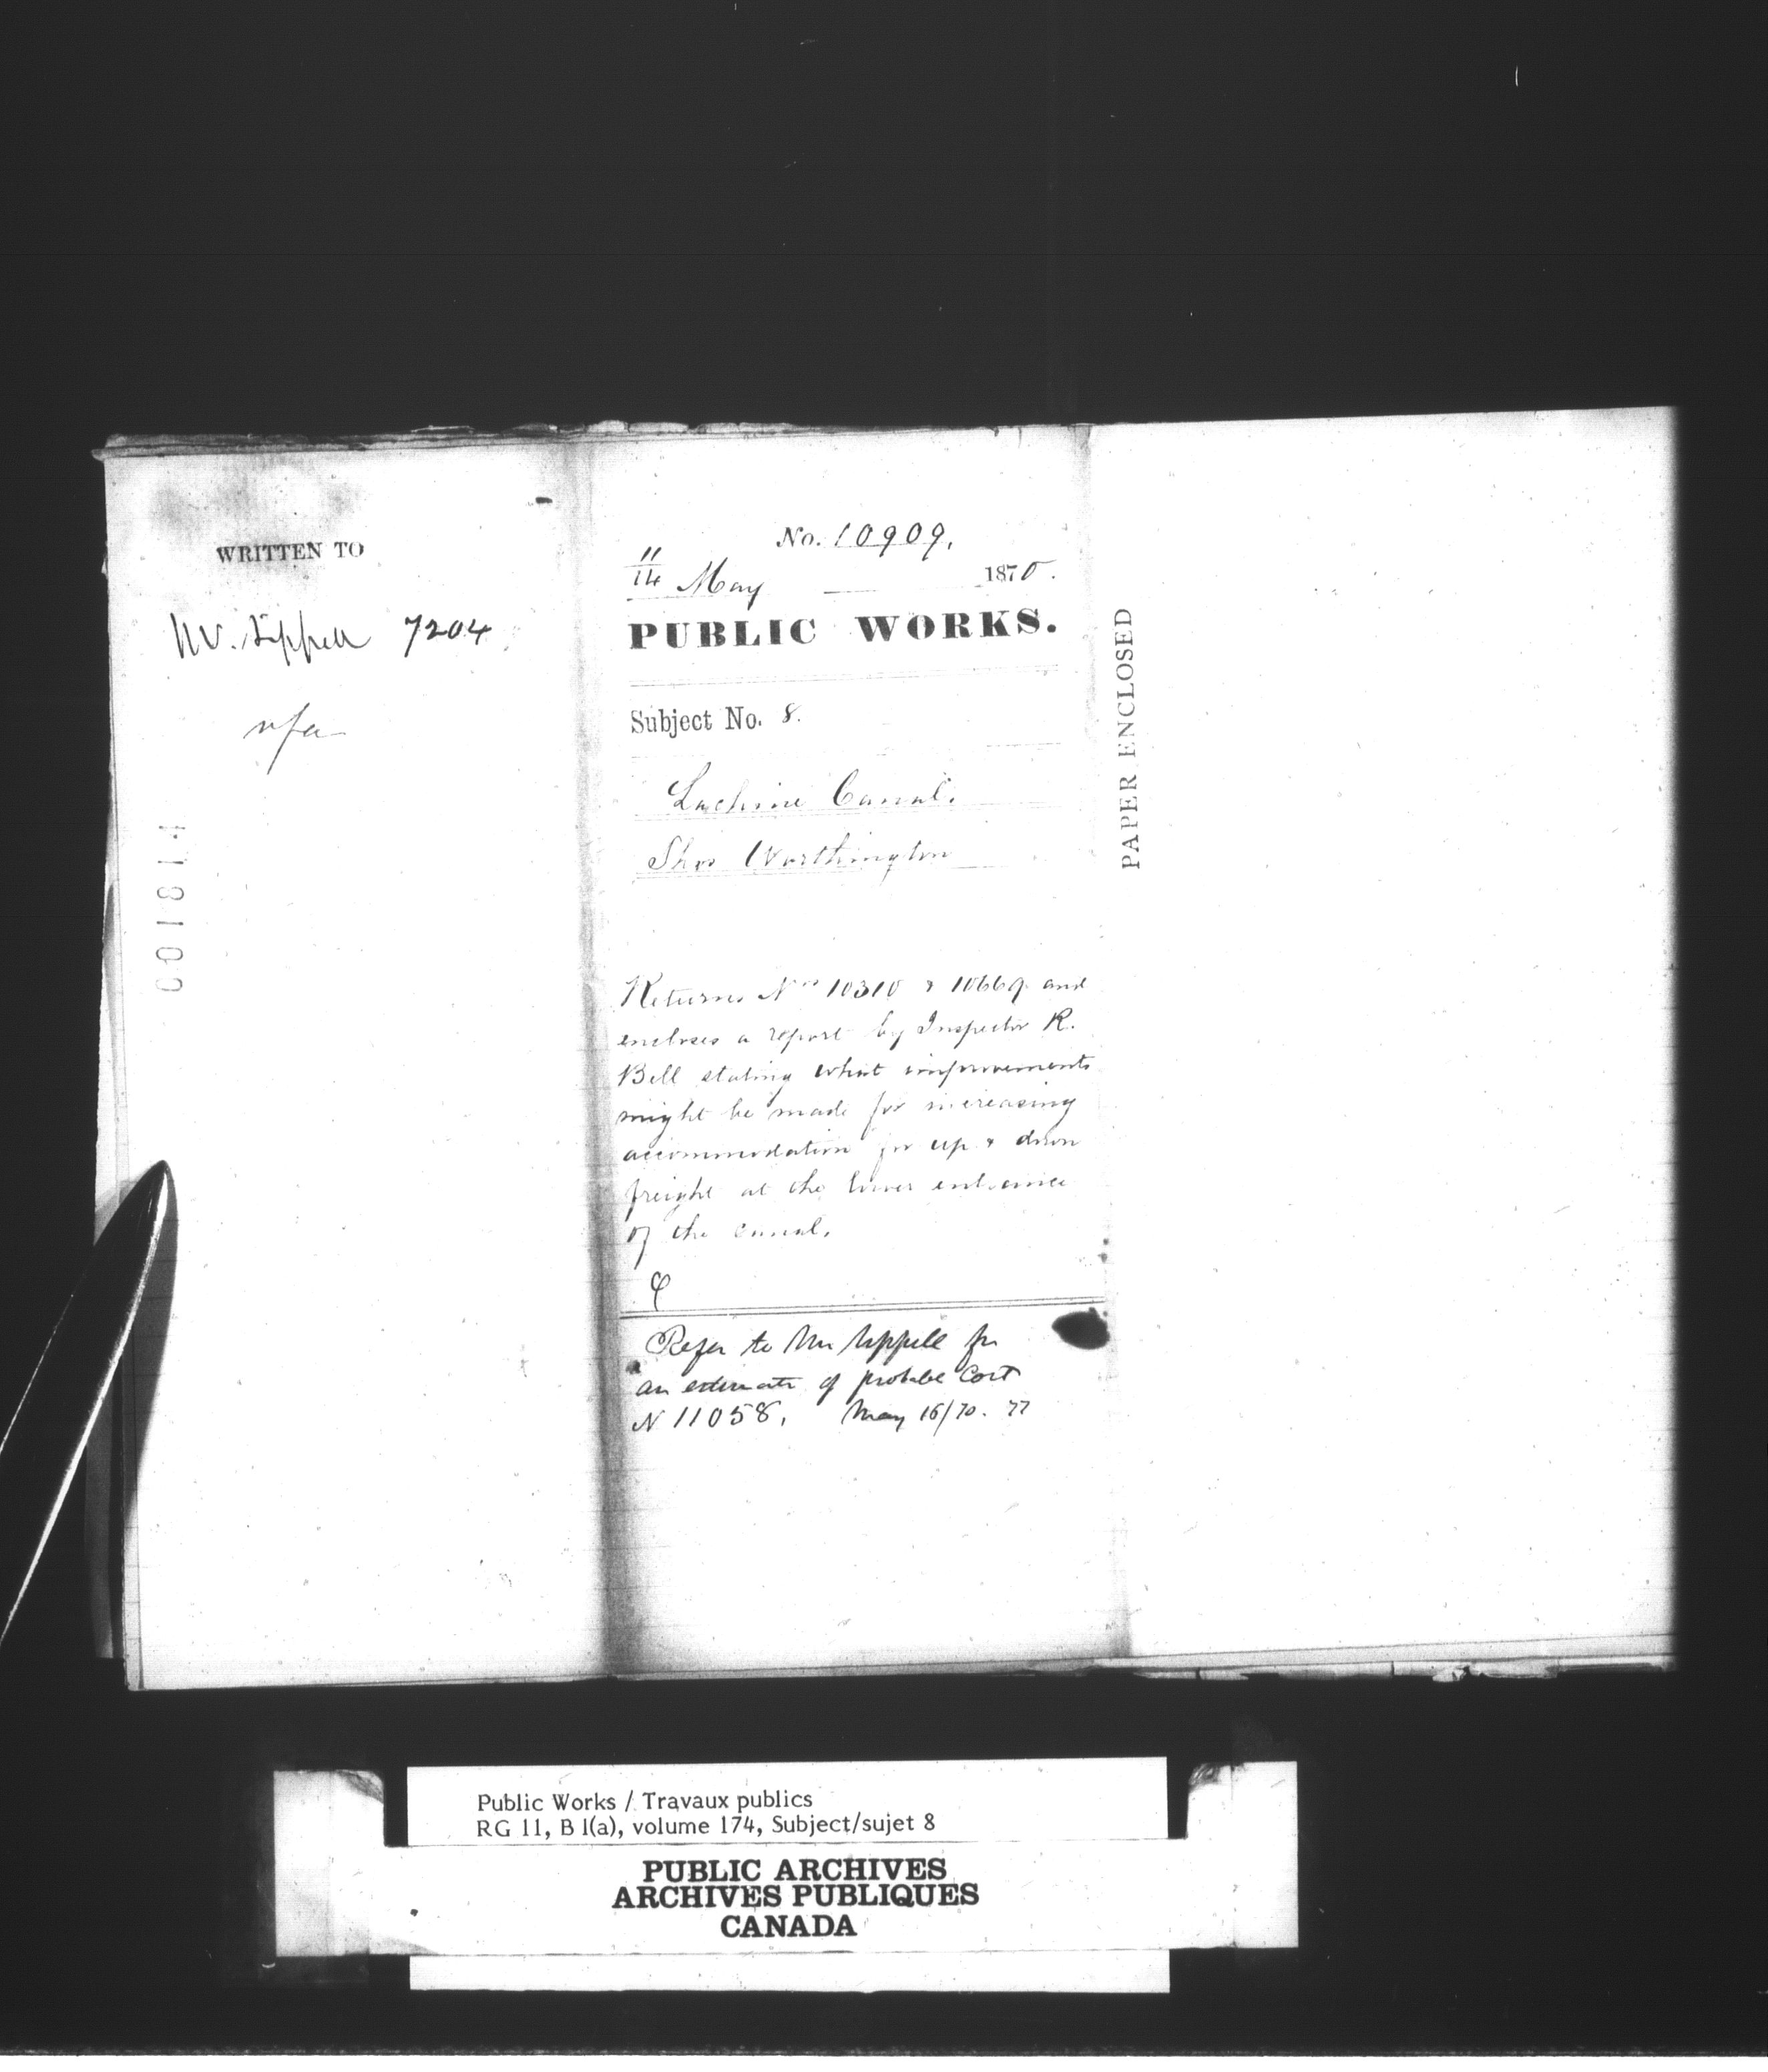 WRITTEN TO
Mr. Sippell 7204
nfa
001811
No. 10909.
11/14 May 1870.
PUBLIC WORKS.
Subject No. 8.
Lachine Canal.
Thos Worthington
Returns Nos 10310 & 10669 and
encloses a report by Inspector R.
Bell stating what improvements
might be made for increasing
accommodation for up & down
freight at the lower entrance
of the canal.
Refer to Mr Sippell for
an estimate of probable Cost
N 11058. May 16/70.
PAPER ENCLOSED
Public Works / Travaux publics
RG 11, B 1(a), volume 174, Subject/sujet 8
PUBLIC ARCHIVES
ARCHIVES PUBLIQUES
CANADA